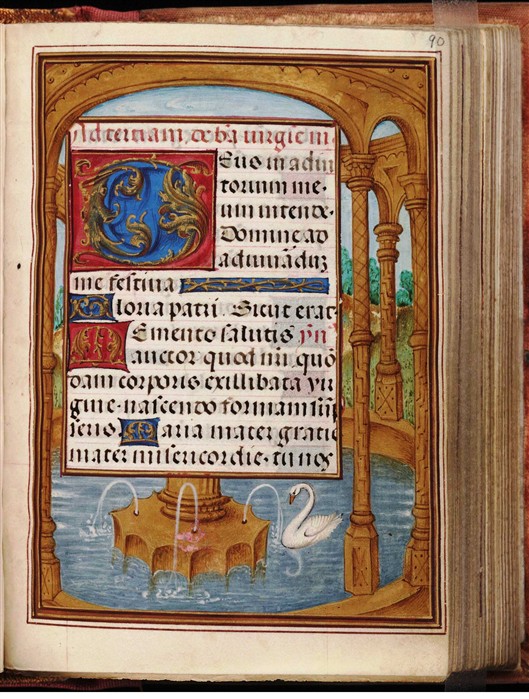 90
Ad tertiam de bt̃ virgie m.
Deus in adiu
torium me‐
um intende.
Domine ad
adiuuãdũ
me festina
Gloria patri. Sicut erat
Memento salutis ỹn̄
auctor quod nr̃i quõ
dam corporis ex illibata vir
gine nascendo formam sũp
seris. Maria mater gratie
mater misericordie. tu nos